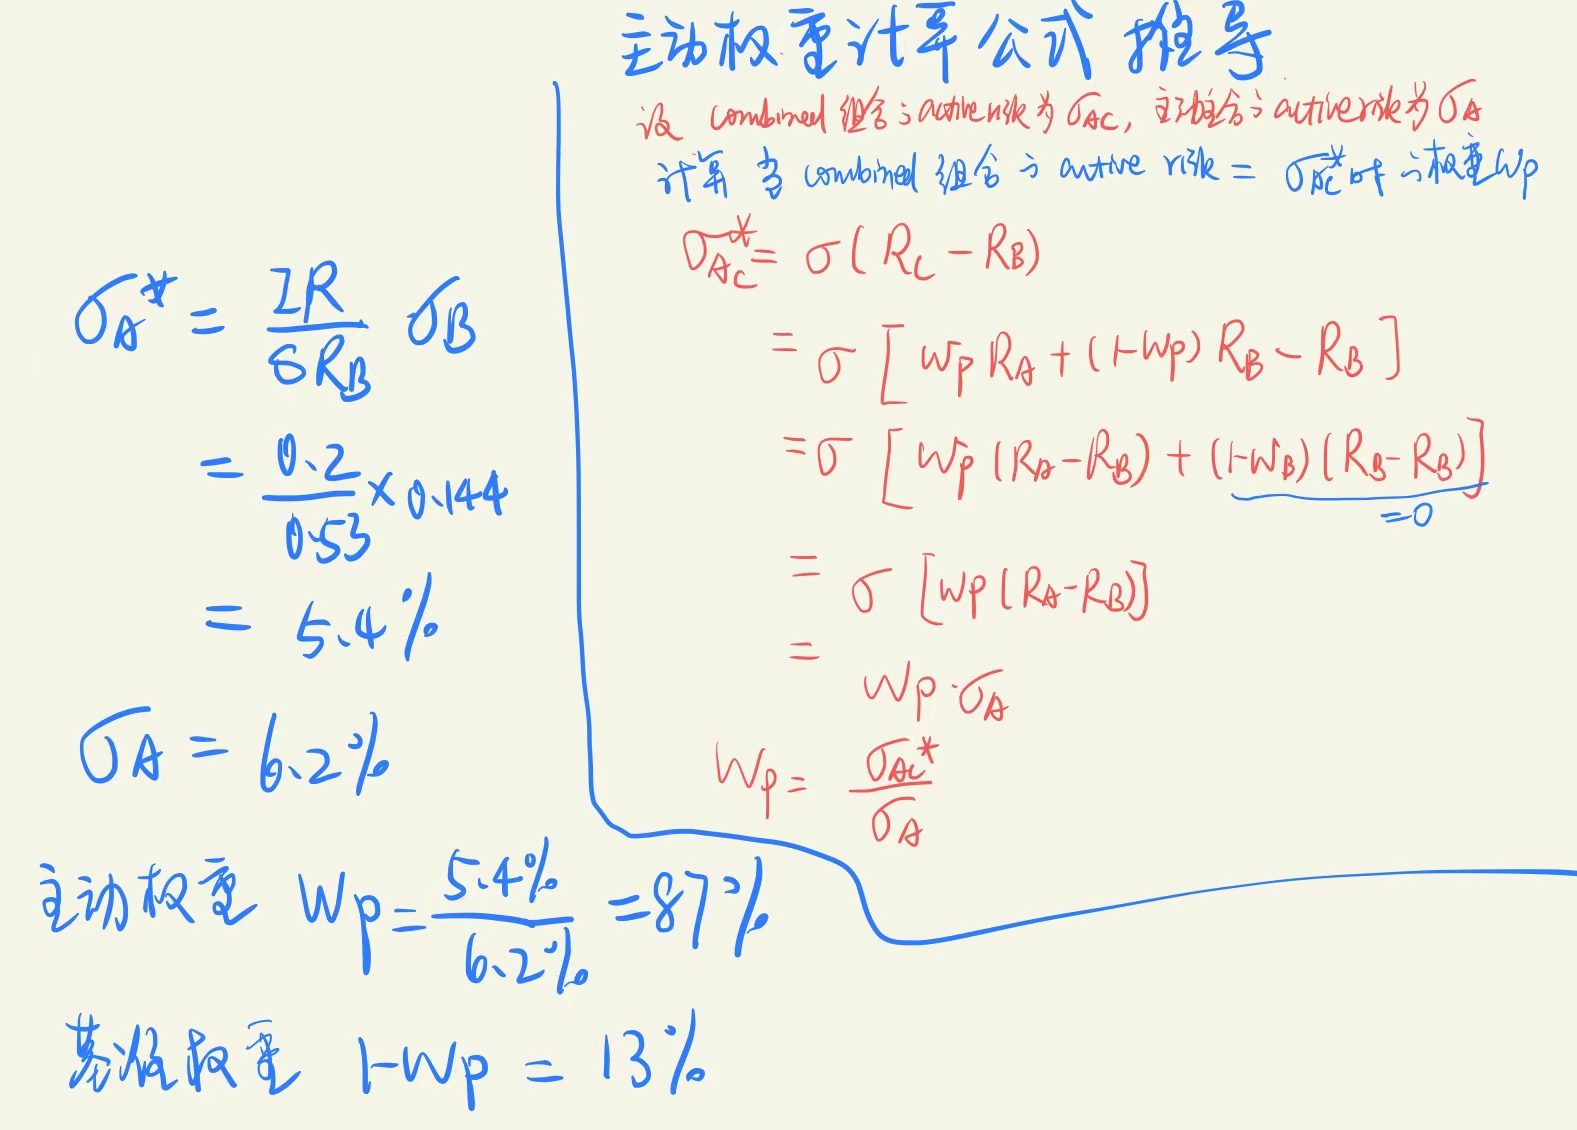 主动权重计算公式 推导
设 combined 组合的 active risk 为 σAC, 主动组合的 active risk 为 σA
计算 当 combined 组合的 active risk = σAC* 时的权重 Wp
σAC* = σ(RC - RB)
= σ[WpRA + (1-Wp)RB - RB]
= σ[Wp(RA-RB) + (1-WB)(RB-RB)]
=0
= σ[Wp(RA-RB)]
=
Wp·σA
Wp = σAC*/σA
σA* = IR/SRB σB
= 0.2/0.53 × 0.144
= 5.4%
σA = 6.2%
主动权重 Wp = 5.4%/6.2% = 87%
基准权重 1-Wp = 13%